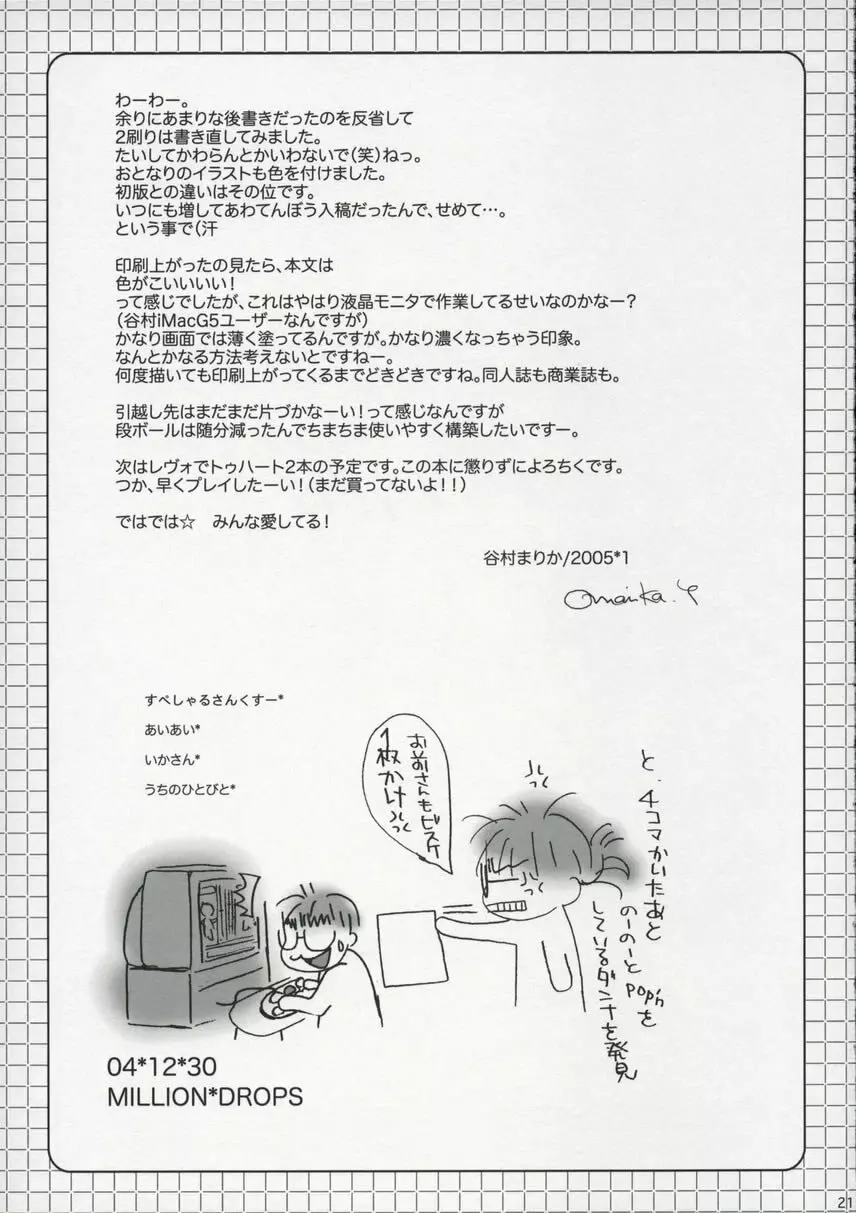 わーわー。
余りにあまりな後書きだったのを反省して
2刷りは書き直してみました。
たいしてかわらんとかいわないで(笑)ねっ。
おとなりのイラストも色を付けました。
初版との違いはその位です。
いつにも増してあわてんぼう入稿だったんで、せめて…。
という事で(汗
印刷上がったの見たら、本文は
色がこいいいい!
って感じでしたが、これはやはり液晶モニタで作業してるせいなのかなー?
(谷村iMacG5ユーザーなんですが)
かなり画面では薄く塗ってるんですが。かなり濃くなっちゃう印象。
なんとかなる方法考えないとですねー。
何度描いても印刷上がってくるまでどきどきですね。同人誌も商業誌も。
引越し先はまだまだ片づかなーい!って感じなんですが
段ボールは随分減ったんでちまちま使いやすく構築したいですー。
次はレヴォでトゥハート2本の予定です。この本に懲りずによろちくです。
つか、早くプレイしたーい!(まだ買ってないよ!!)
ではでは☆　みんな愛してる!
谷村まりか/2005*1
すぺしゃるさんくすー*
あいあい*
いかさん*
うちのひとびと*
と、4コマかいたあと
のーのーとpop'nを
しているダンナを発見
お前さんもビスケ
1枚かけ
04*12*30
MILLION*DROPS
21